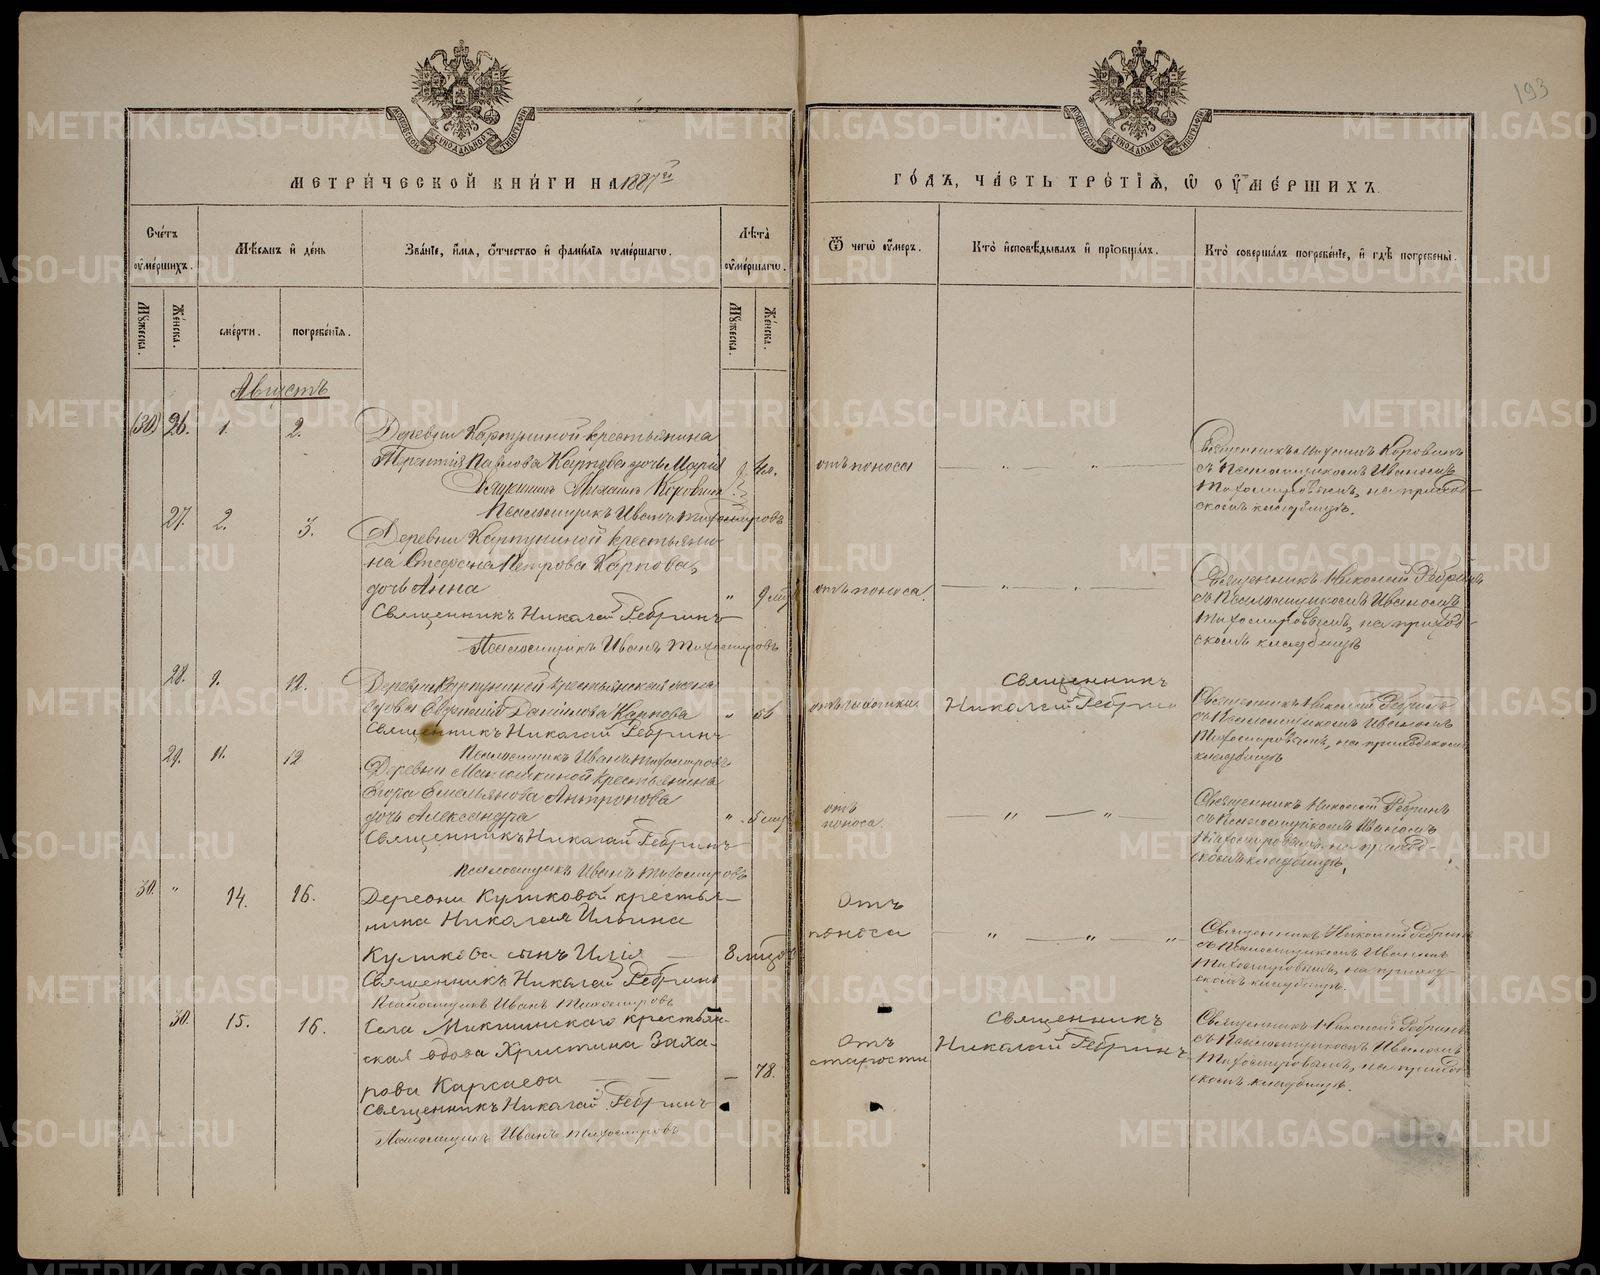 193
МЕТРИ́ЧЕСКОЙ КНИ́ГИ НА 1887й
ГО́ДЪ, ЧА́СТЬ ТРЕ́ТІѦ, Ѡ ОУ҆МЕ́РШИХЪ.
Сче́тъ оу҆ме́ршихъ.
Мѣ́сяцъ и҆ де́нь
Зва́нїе, и҆́мѧ, ѻ҆́тчество и҆ фами́лїѧ оу҆ме́ршагѡ.
Лѣ́та оу҆ме́ршагѡ.
Ѿ чегѡ̀ оу҆́меръ.
Кто̀ и҆сповѣ́дывалъ и҆ прїобща́лъ.
Кто̀ соверша́лъ погребе́нїе, и҆ гдѣ̀ погребены̀.
Мꙋ́жеска.
Же́нска.
сме́рти.
погребе́нїѧ.
Мꙋ́жеска.
Же́нска.
Августъ
(30) 26. 1. 2.
Деревни Карпуниной крестьянина
Терентія Павлова Карпова дочь Марія
Священникъ Михаилъ Коровинъ
Псаломщикъ Иванъ Тихомировъ
отъ поноса
Священникъ Михаилъ Коровинъ
съ Псаломщикомъ Иваномъ
Тихомировымъ, на приход-
скомъ кладбищѣ.
27. 2. 3.
Деревни Карпуниной крестьяни-
на Стефана Петрова Карпова,
дочь Анна
Священникъ Николай Ребринъ
Псаломщикъ Иванъ Тихомировъ
отъ поноса.
Священникъ Николай Ребринъ
съ Псаломщикомъ Иваномъ
Тихомировымъ, на приход-
скомъ кладбищѣ
28. 9. 12.
Деревни Карпуниной крестьянская жена
Данилова Карпова
Священникъ Николай Ребринъ
Псаломщикъ Иванъ Тихомировъ
Священникъ
Николай Ребринъ
Священникъ Николай Ребринъ
съ Псаломщикомъ Иваномъ
Тихомировымъ, на приходскомъ
кладбищѣ
29. 11. 12
Деревни крестьянина
Егора Емельянова Антропова
дочь Александра
Священникъ Николай Ребринъ
Псаломщикъ Иванъ Тихомировъ
отъ
поноса.
Священникъ Николай Ребринъ
съ Псаломщикомъ Иваномъ
Тихомировымъ, на приход-
скомъ кладбищѣ.
30. " 14. 16.
Деревни Куликовой крестья-
нина Николая Ильина
Куликова сынъ Илія 8
Священникъ Николай Ребринъ
Псаломщикъ Иванъ Тихомировъ
Отъ
поноса
Священникъ Николай Ребринъ
съ Псаломщикомъ Иваномъ
Тихомировымъ, на приход-
скомъ кладбищѣ.
30. 15. 16.
Села Микшинскаго крестьян-
ская вдова Христина Заха-
рова Карсаева — 78.
Священникъ Николай Ребринъ
Псаломщикъ Иванъ Тихомировъ
Отъ
старости
Священникъ
Николай Ребринъ
Священникъ Николай Ребринъ
съ Псаломщикомъ Иваномъ
Тихомировымъ, на приход-
скомъ кладбищѣ.
METRIKI.GASO-URAL.RU